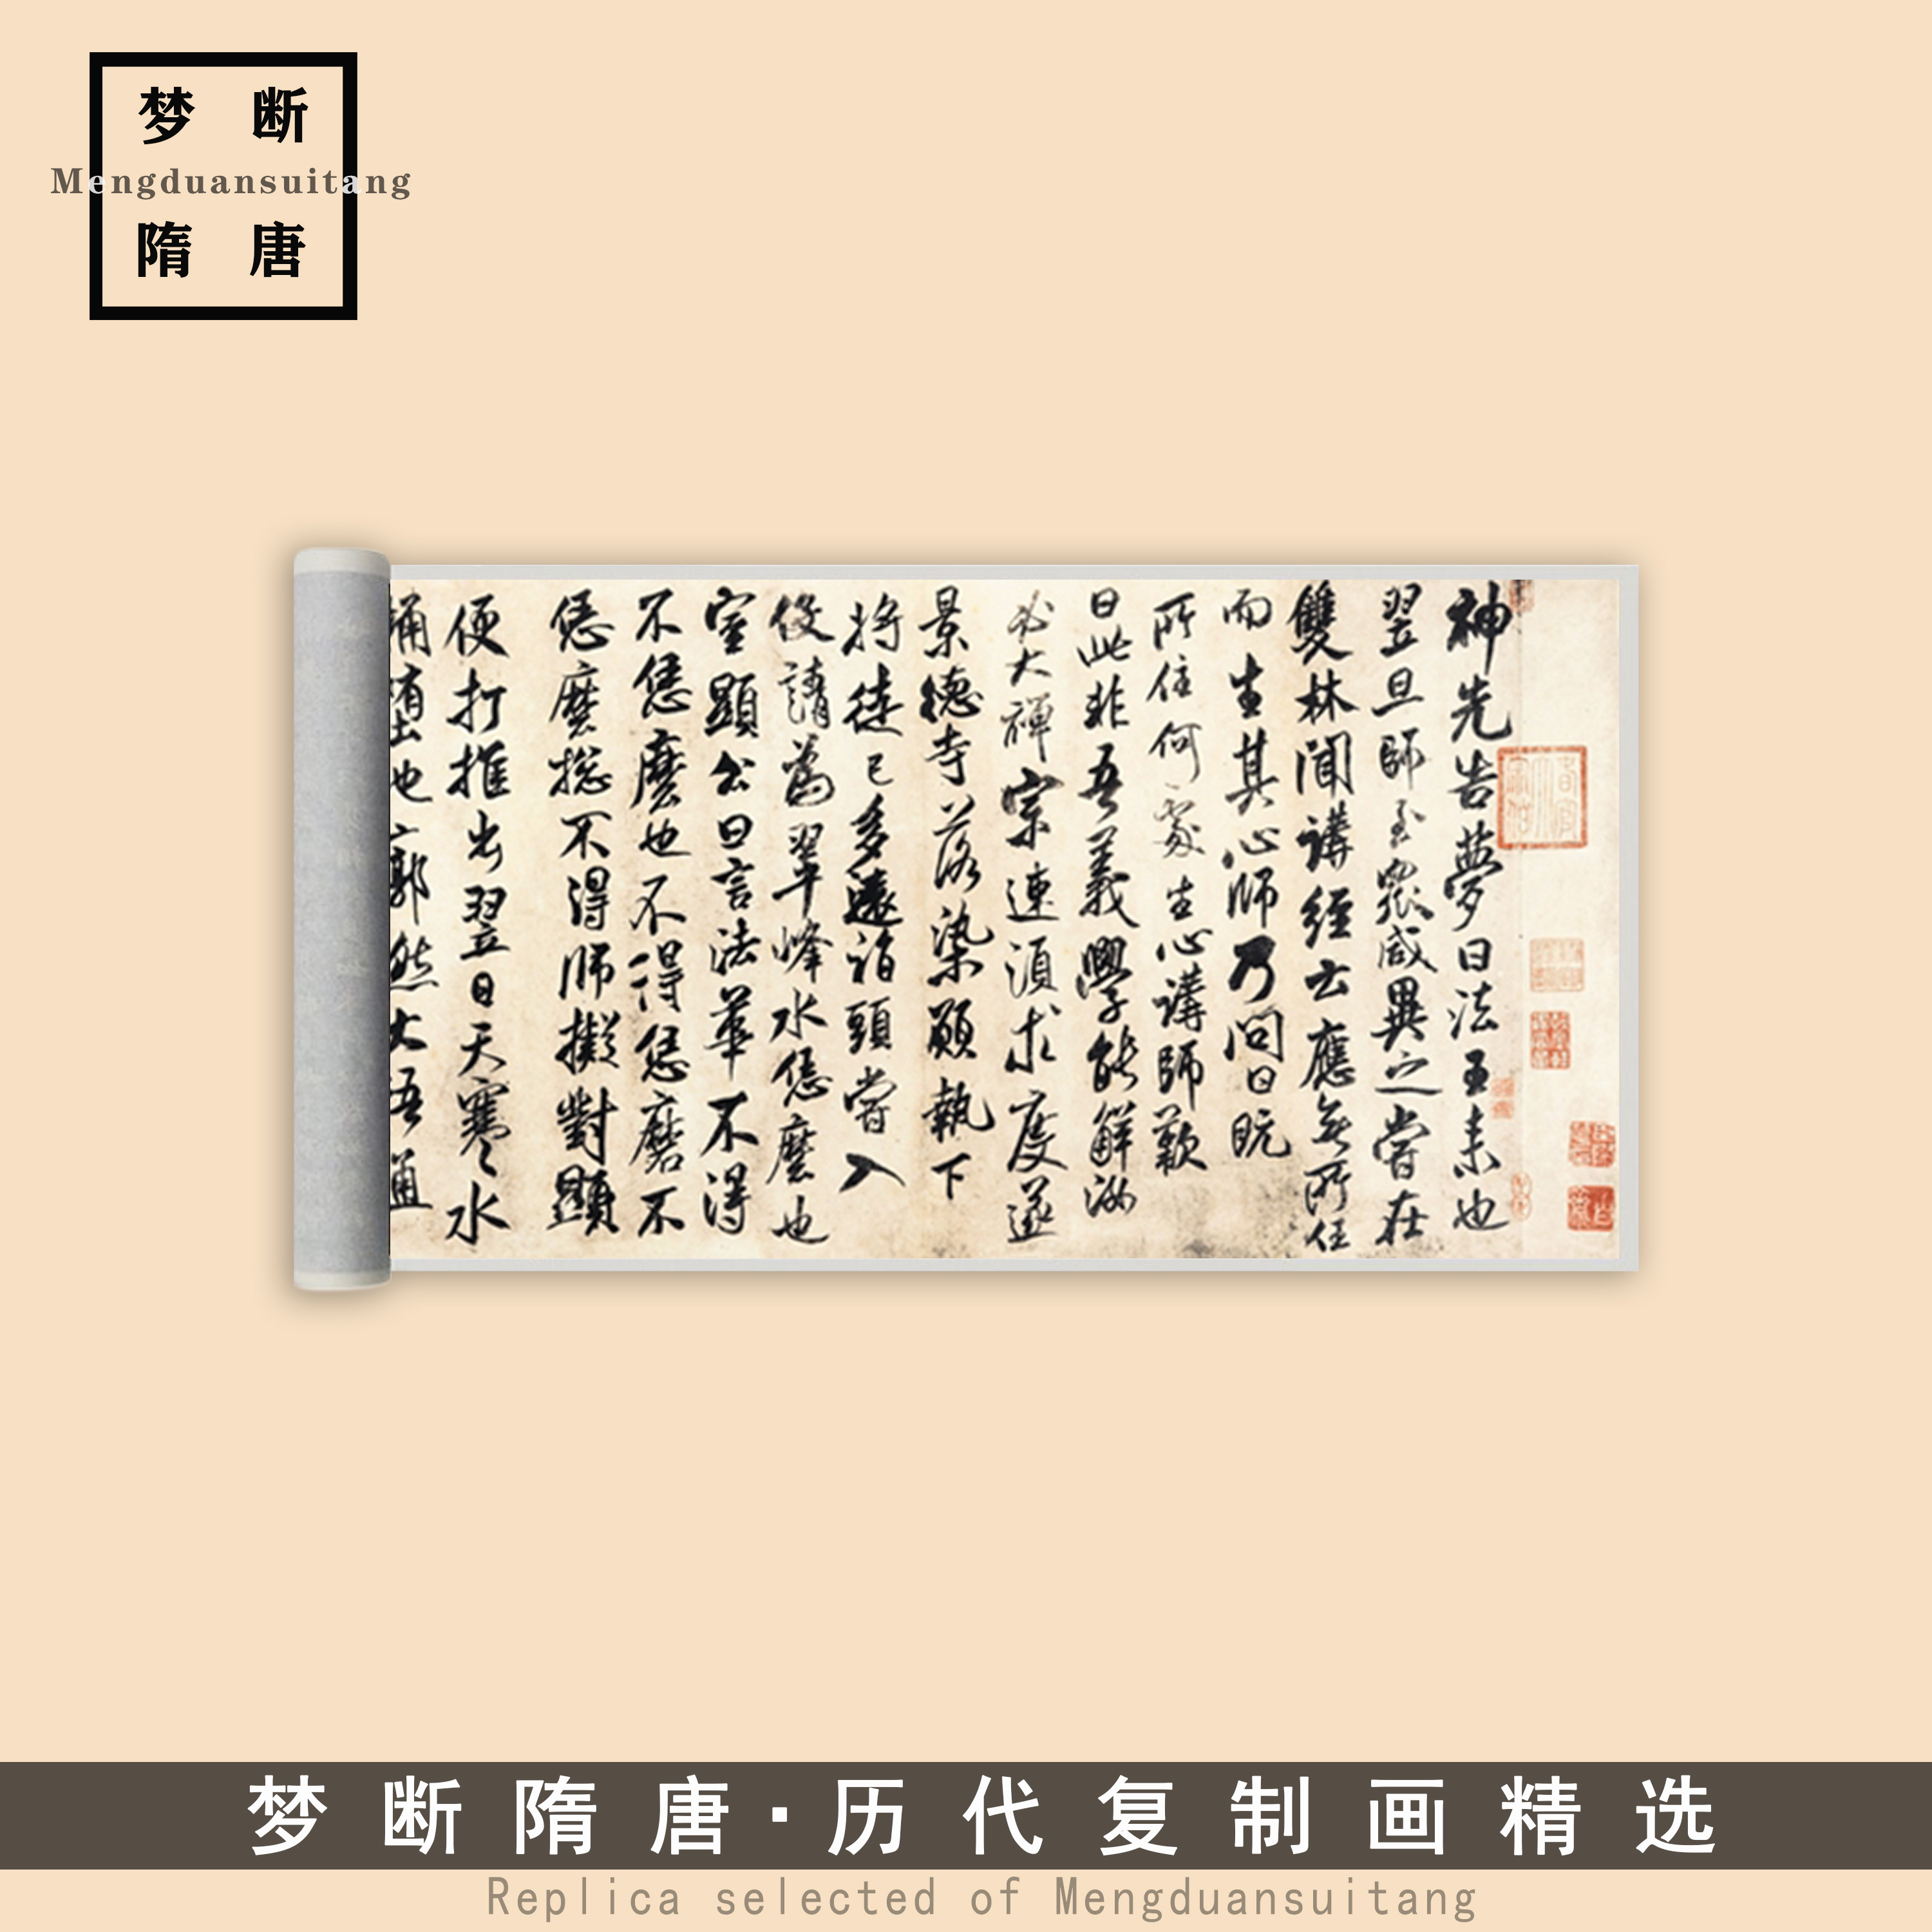 梦 断
Mengduansuitang
隋 唐
神先告夢曰法王来也
翌旦師至衆咸異之嘗在
雙林聞講經云應無所住
而生其心師乃問曰既
所住何處生心講師歎
曰此非吾義學能解汝
大禪宗連須求度遂
景德寺落染願執下
将徒已多遠詣頭嘗入
請為翠峰水恁麼也
室顯公曰言法華不得
不恁麼也不得恁麼不
恁麼揔不得師擬對顯
便打推出翌日天寒水
桶堕也廓然大悟
梦断隋唐·历代复制画精选
Replica selected of Mengduansuitang